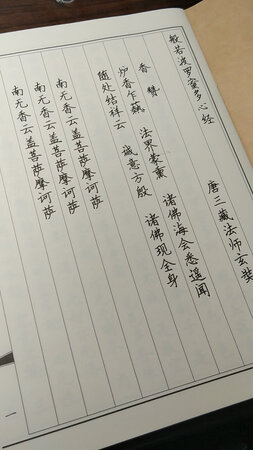 般若波罗蜜多心经
唐三藏法师玄奘
香赞
炉香乍爇 法界蒙熏 诸佛海会悉遥闻
随处结祥云 诚意方殷 诸佛现全身
南无香云盖菩萨摩诃萨
南无香云盖菩萨摩诃萨
南无香云盖菩萨摩诃萨
一